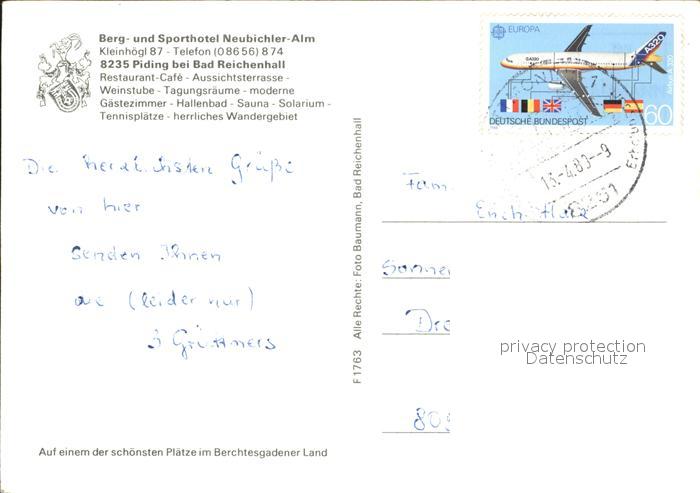 Berg- und Sporthotel Neubichler-Alm
Kleinhögl 87 - Telefon (0 86 56) 8 74
8235 Piding bei Bad Reichenhall
Restaurant-Café - Aussichtsterrasse -
Weinstube - Tagungsräume - moderne
Gästezimmer - Hallenbad - Sauna - Solarium -
Tennisplätze - herrliches Wandergebiet
Die herzlichsten Grüße
von hier
senden Ihnen
die (leider nur)
3
Auf einem der schönsten Plätze im Berchtesgadener Land
F 1763 Alle Rechte: Foto Baumann, Bad Reichenhall
EUROPA
A320
Airbus A320
DEUTSCHE BUNDESPOST
60
8231
Fam.
Erich
Sonne
Dre
privacy protection
Datenschutz